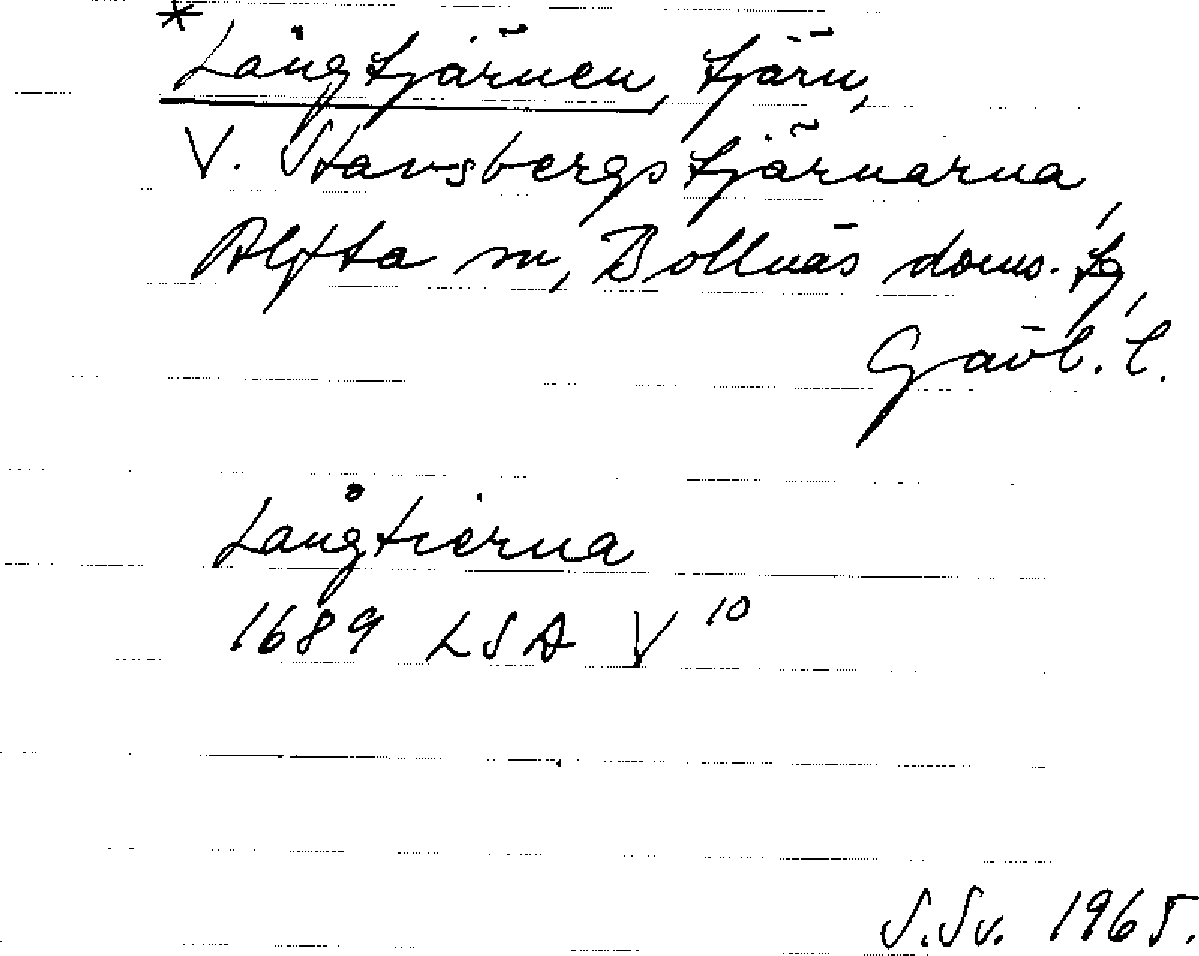 *
Långtjärnen, tjärn,
V. Stavsbergstjärnarna,
Alfta sn, Bollnäs doms. tg,
Gävl. l.
Långtierna
1689 LSA V 10
S.Sv. 1965.